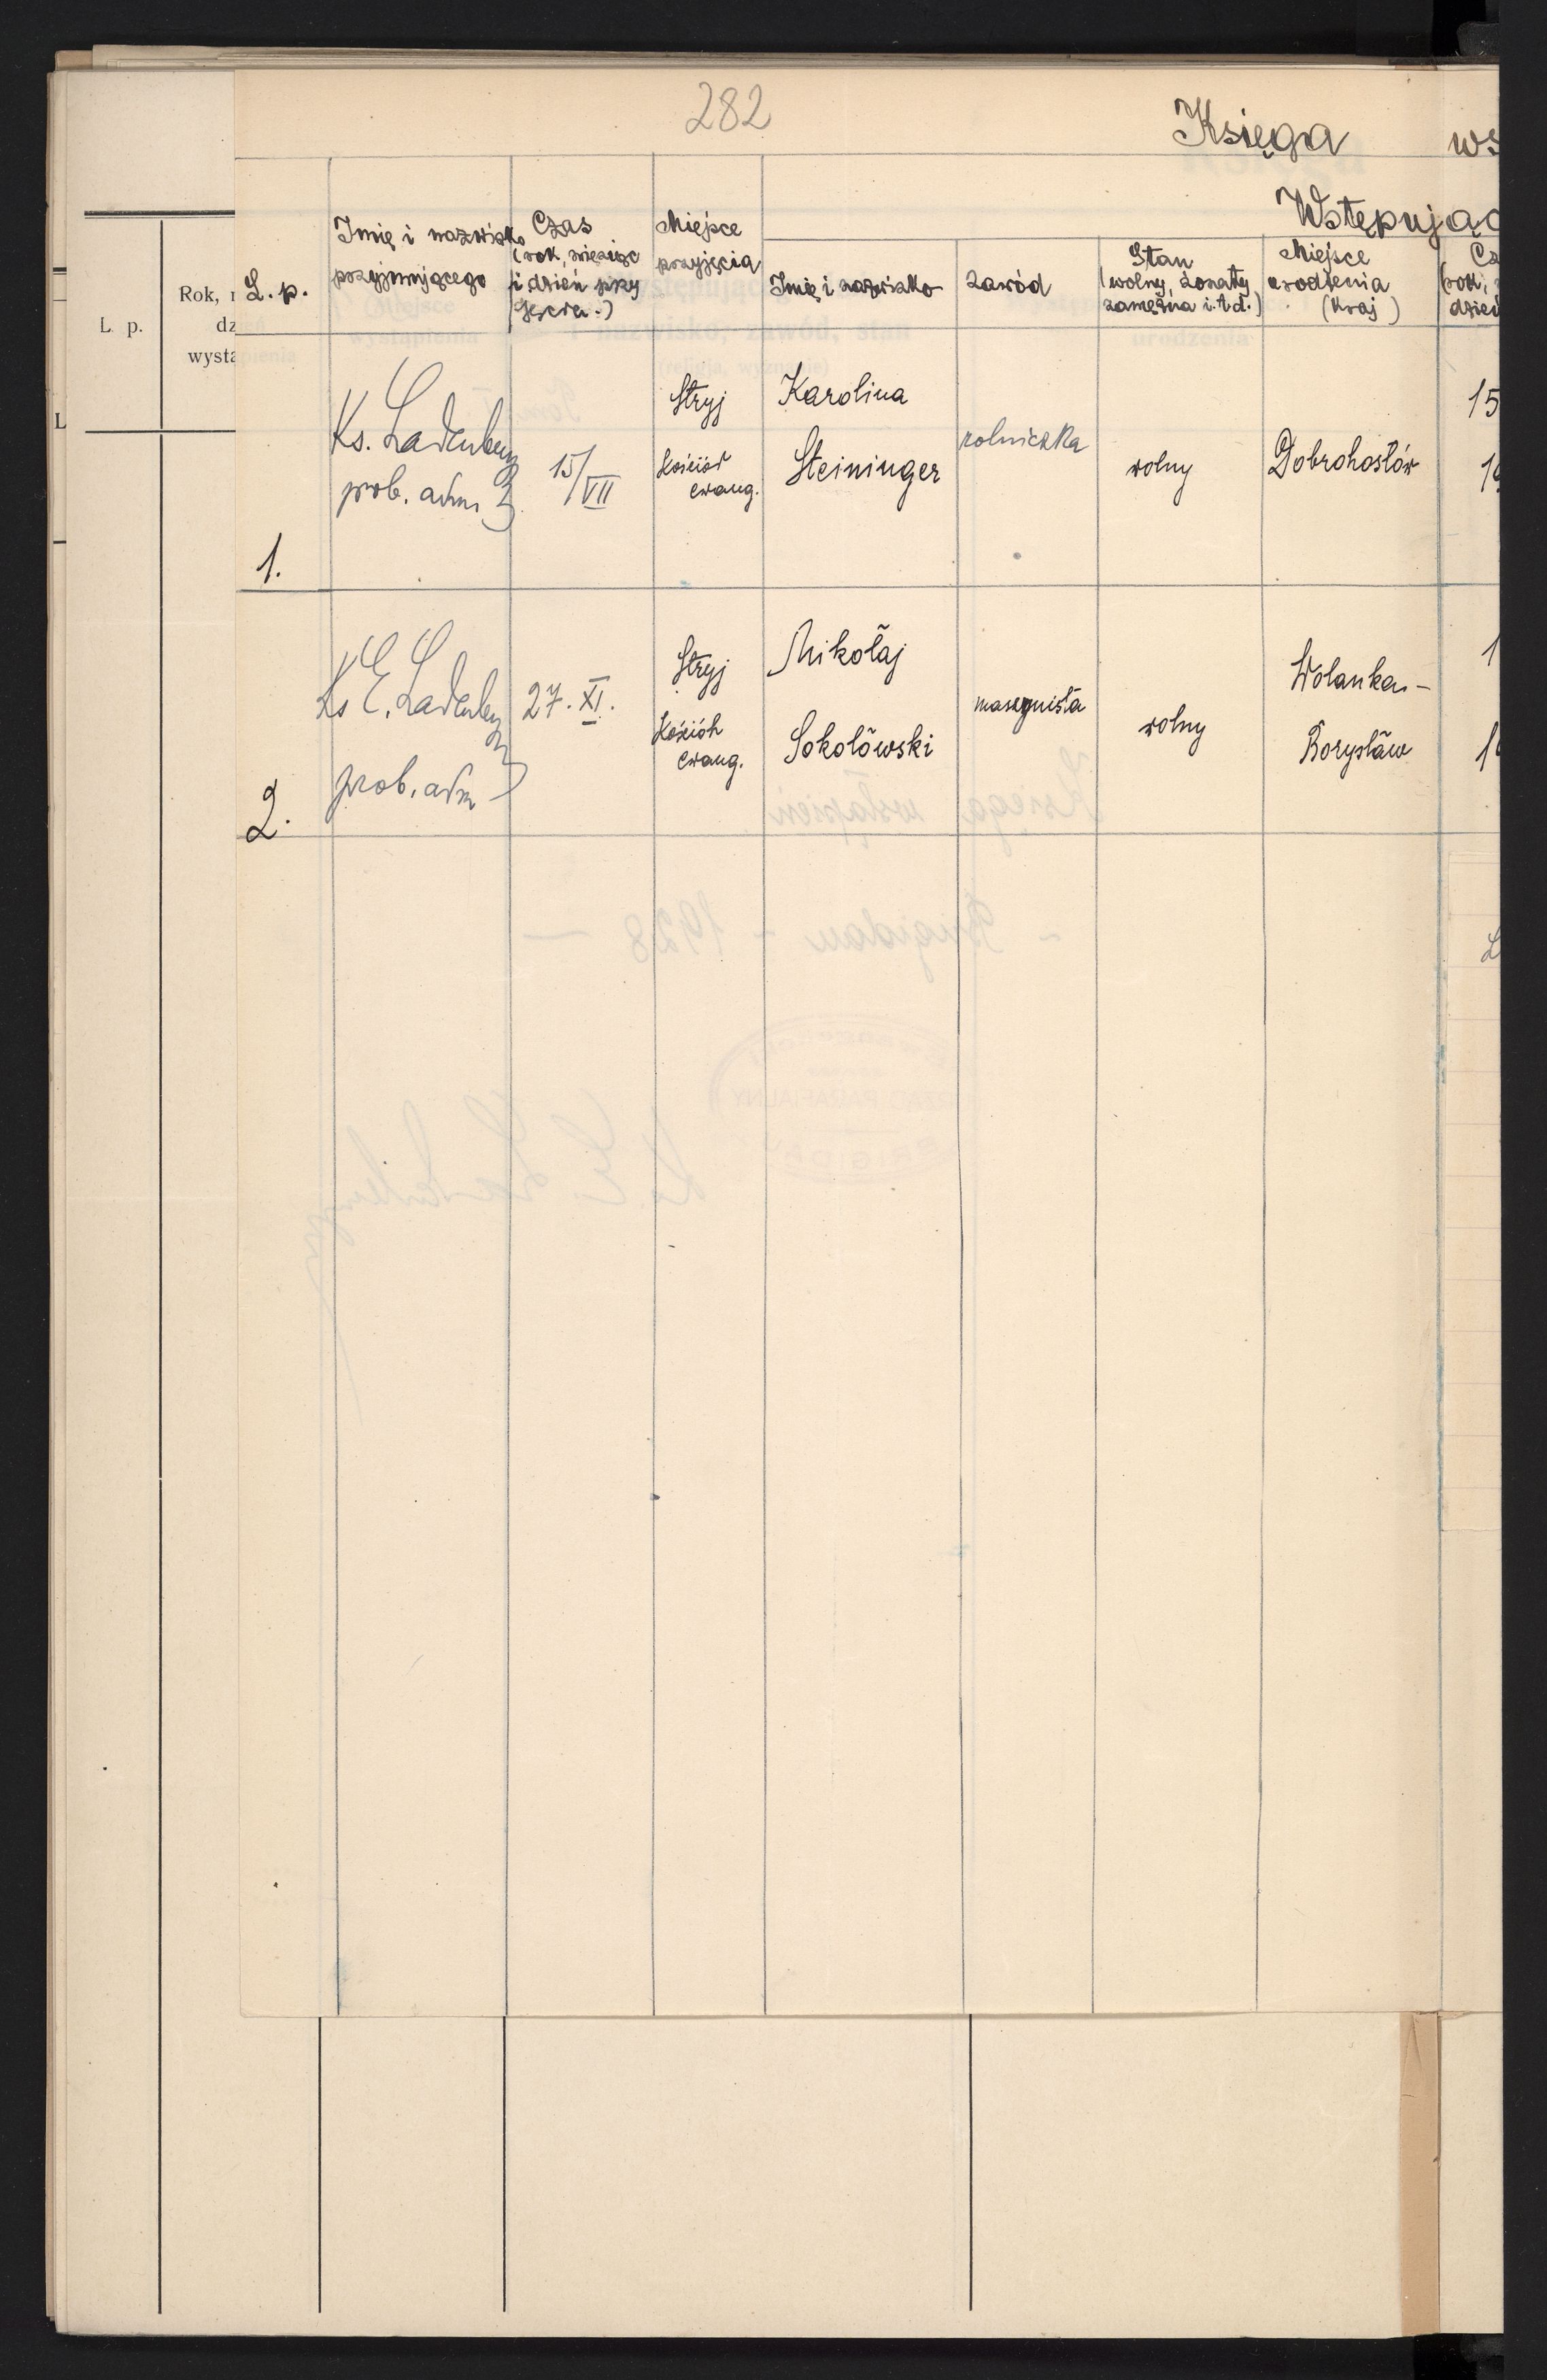 282
Księga
Wstępując
L. p.
Imię i nazwisko
przyjmującego
Czas
(rok, miesiąc
i dzień przy
jęcia.)
Miejsce
przyjęcia
Imię i nazwisko
zawód
Stan
(wolny, żonaty,
zamężna i.t.d.)
Miejsce
urodzenia
(kraj)
L. p.
Rok,
1.
Ks. Ladenberger
prob. adm.
15/VII
Stryj
Kościół
ewang.
Karolina
Steininger
rolniczka
wolny
Dobrohostów
15
2.
Ks E. Ladenberger
prob. adm
27. XI.
Stryj
Kościół
ewang.
Mikołaj
Sokołowski
maszynista
wolny
Wolanka-
Borysław